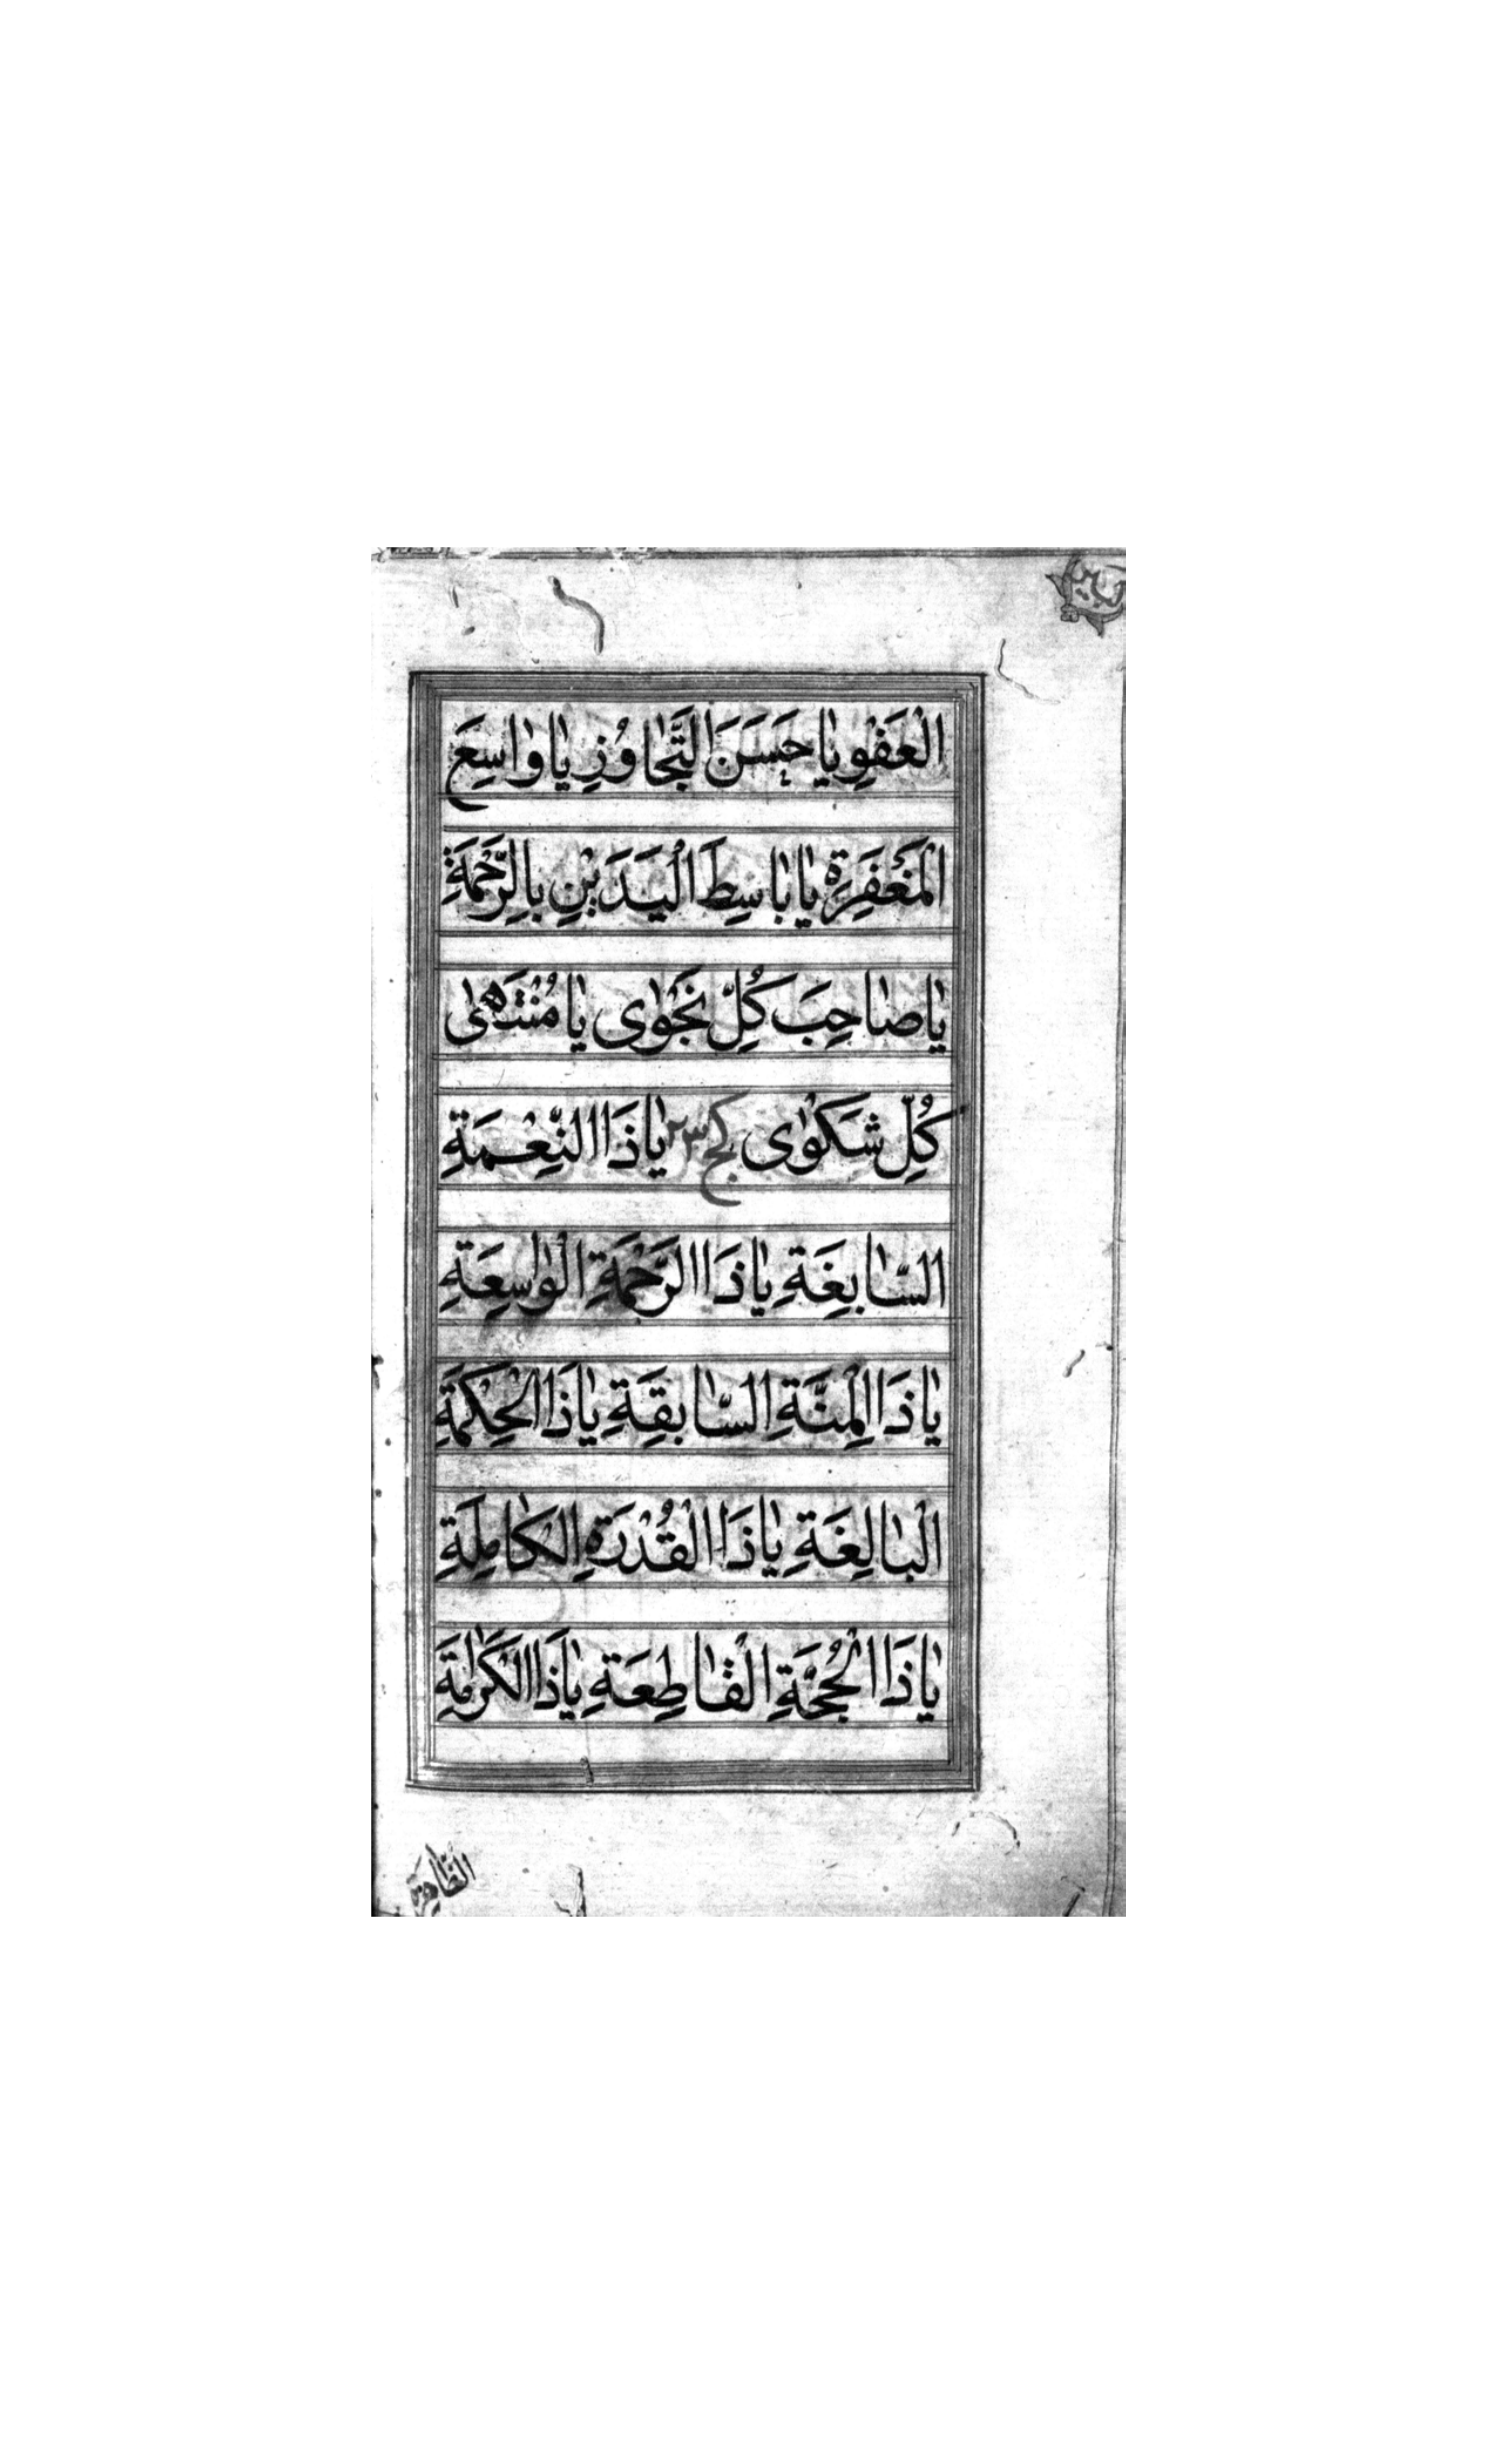 الْعَفْوِ يَا حَسَنَ التَّجَاوُزِ يَا وَاسِعَ
الْمَغْفِرَةِ يَا بَاسِطَ الْيَدَيْنِ بِالرَّحْمَةِ
يَا صَاحِبَ كُلِّ نَجْوٰى يَا مُنْتَهٰى
كُلِّ شَكْوٰى كج يَا ذَا النِّعْمَةِ
السَّابِغَةِ يَا ذَا الرَّحْمَةِ الْوَاسِعَةِ
يَا ذَا الْمِنَّةِ السَّابِقَةِ يَا ذَا الْحِكْمَةِ
الْبَالِغَةِ يَا ذَا الْقُدْرَةِ الْكَامِلَةِ
يَا ذَا الْحُجَّةِ الْقَاطِعَةِ يَا ذَا الْكَرَامَةِ
الظاهرة